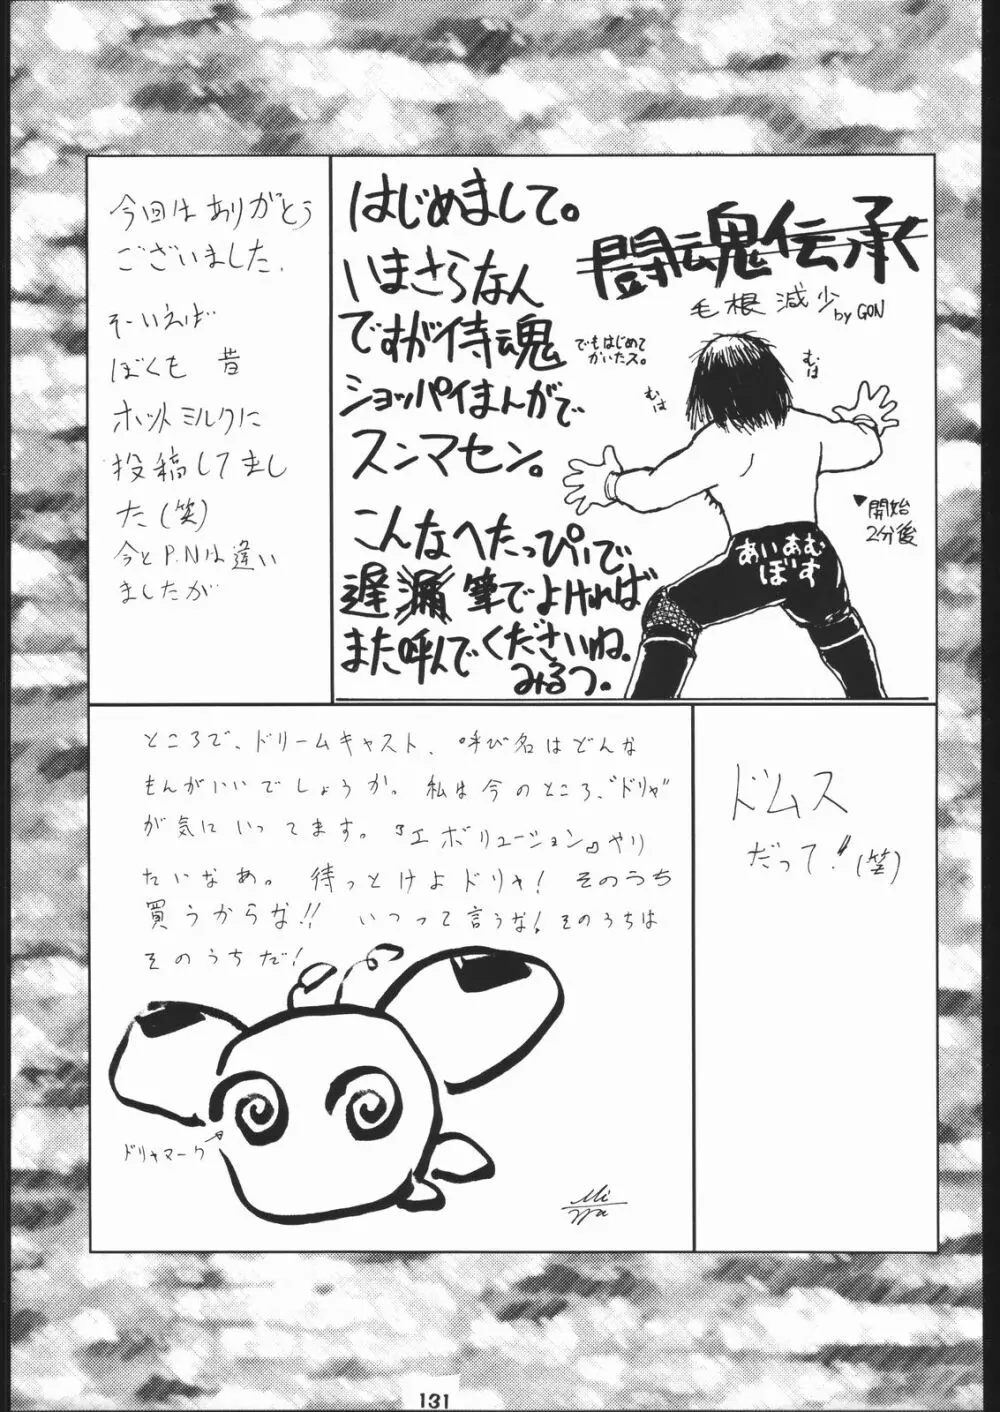 はじめまして。
いまさらなん
ですが侍魂
ショッパイまんがで
スンマセン。
こんなへたっぴぃで
遅漏筆でよければ
また呼んでくださいね。
みるつ。
闘魂伝承
毛根減少 by GON
でもはじめて
かいたス。
むは
むは
▼開始
2分後
あいあむ
ぼす
今回はありがとう
ございました.
そーいえば
ぼくも 昔
ホットミルクに
投稿してまし
た(笑)
今とP.Nは違い
ましたが
ドムス
だって!(笑)
ところで、ドリームキャスト、呼び名はどんな
もんがいいでしょうか。私は今のところ、"ドリャ"
が気にいってます。『エボリューション』やり
たいなあ。 待っとけよドリャ! そのうち
買うからな!! いつって言うな! そのうちは
そのうちだ!
ドリャマーク
Mi
ya
131